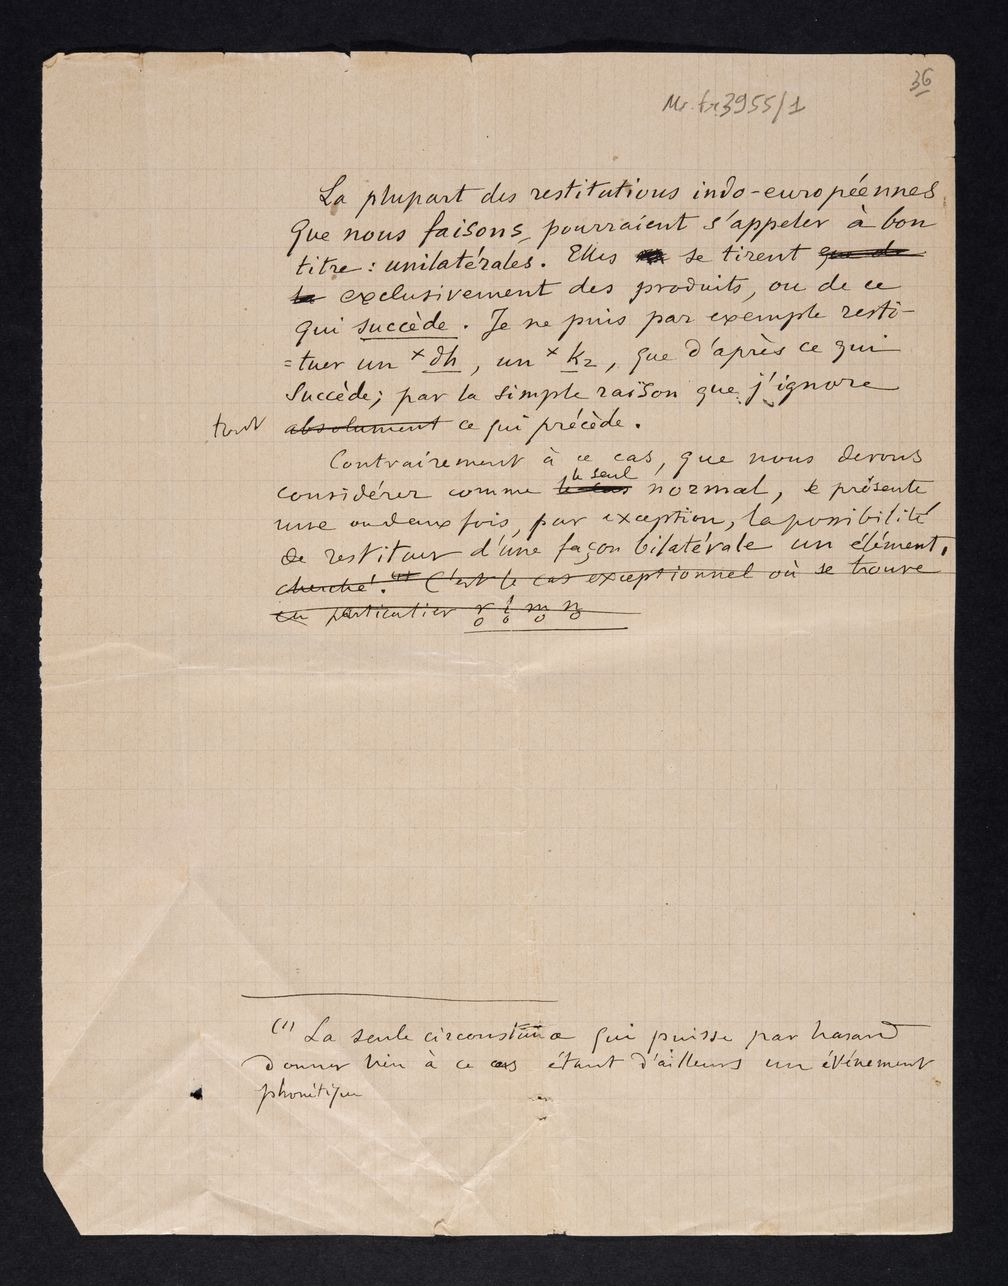 36
Ms. fr. 3955/1
La plupart des restitutions indo-européennes
que nous faisons, pourraient s'appeler à bon
titre : unilatérales. Elles se tirent que de
la exclusivement des produits, ou de ce
qui succède. Je ne puis par exemple resti-
=tuer un ×dh, un ×k₂, que d'après ce qui
succède; par la simple raison que j'ignore
tout absolument ce qui précède.
Contrairement à ce cas, que nous devons
le seul
considérer comme le cas normal, se présente
une ou deux fois, par exception, la possibilité
de restituer d'une façon bilatérale un élément.
cherché. C'est le cas exceptionnel où se trouve
en particulier r̥ l̥ m̥ n̥
(1) La seule circonstance qui puisse par hasard
donner lieu à ce cas étant d'ailleurs un événement
phonétique